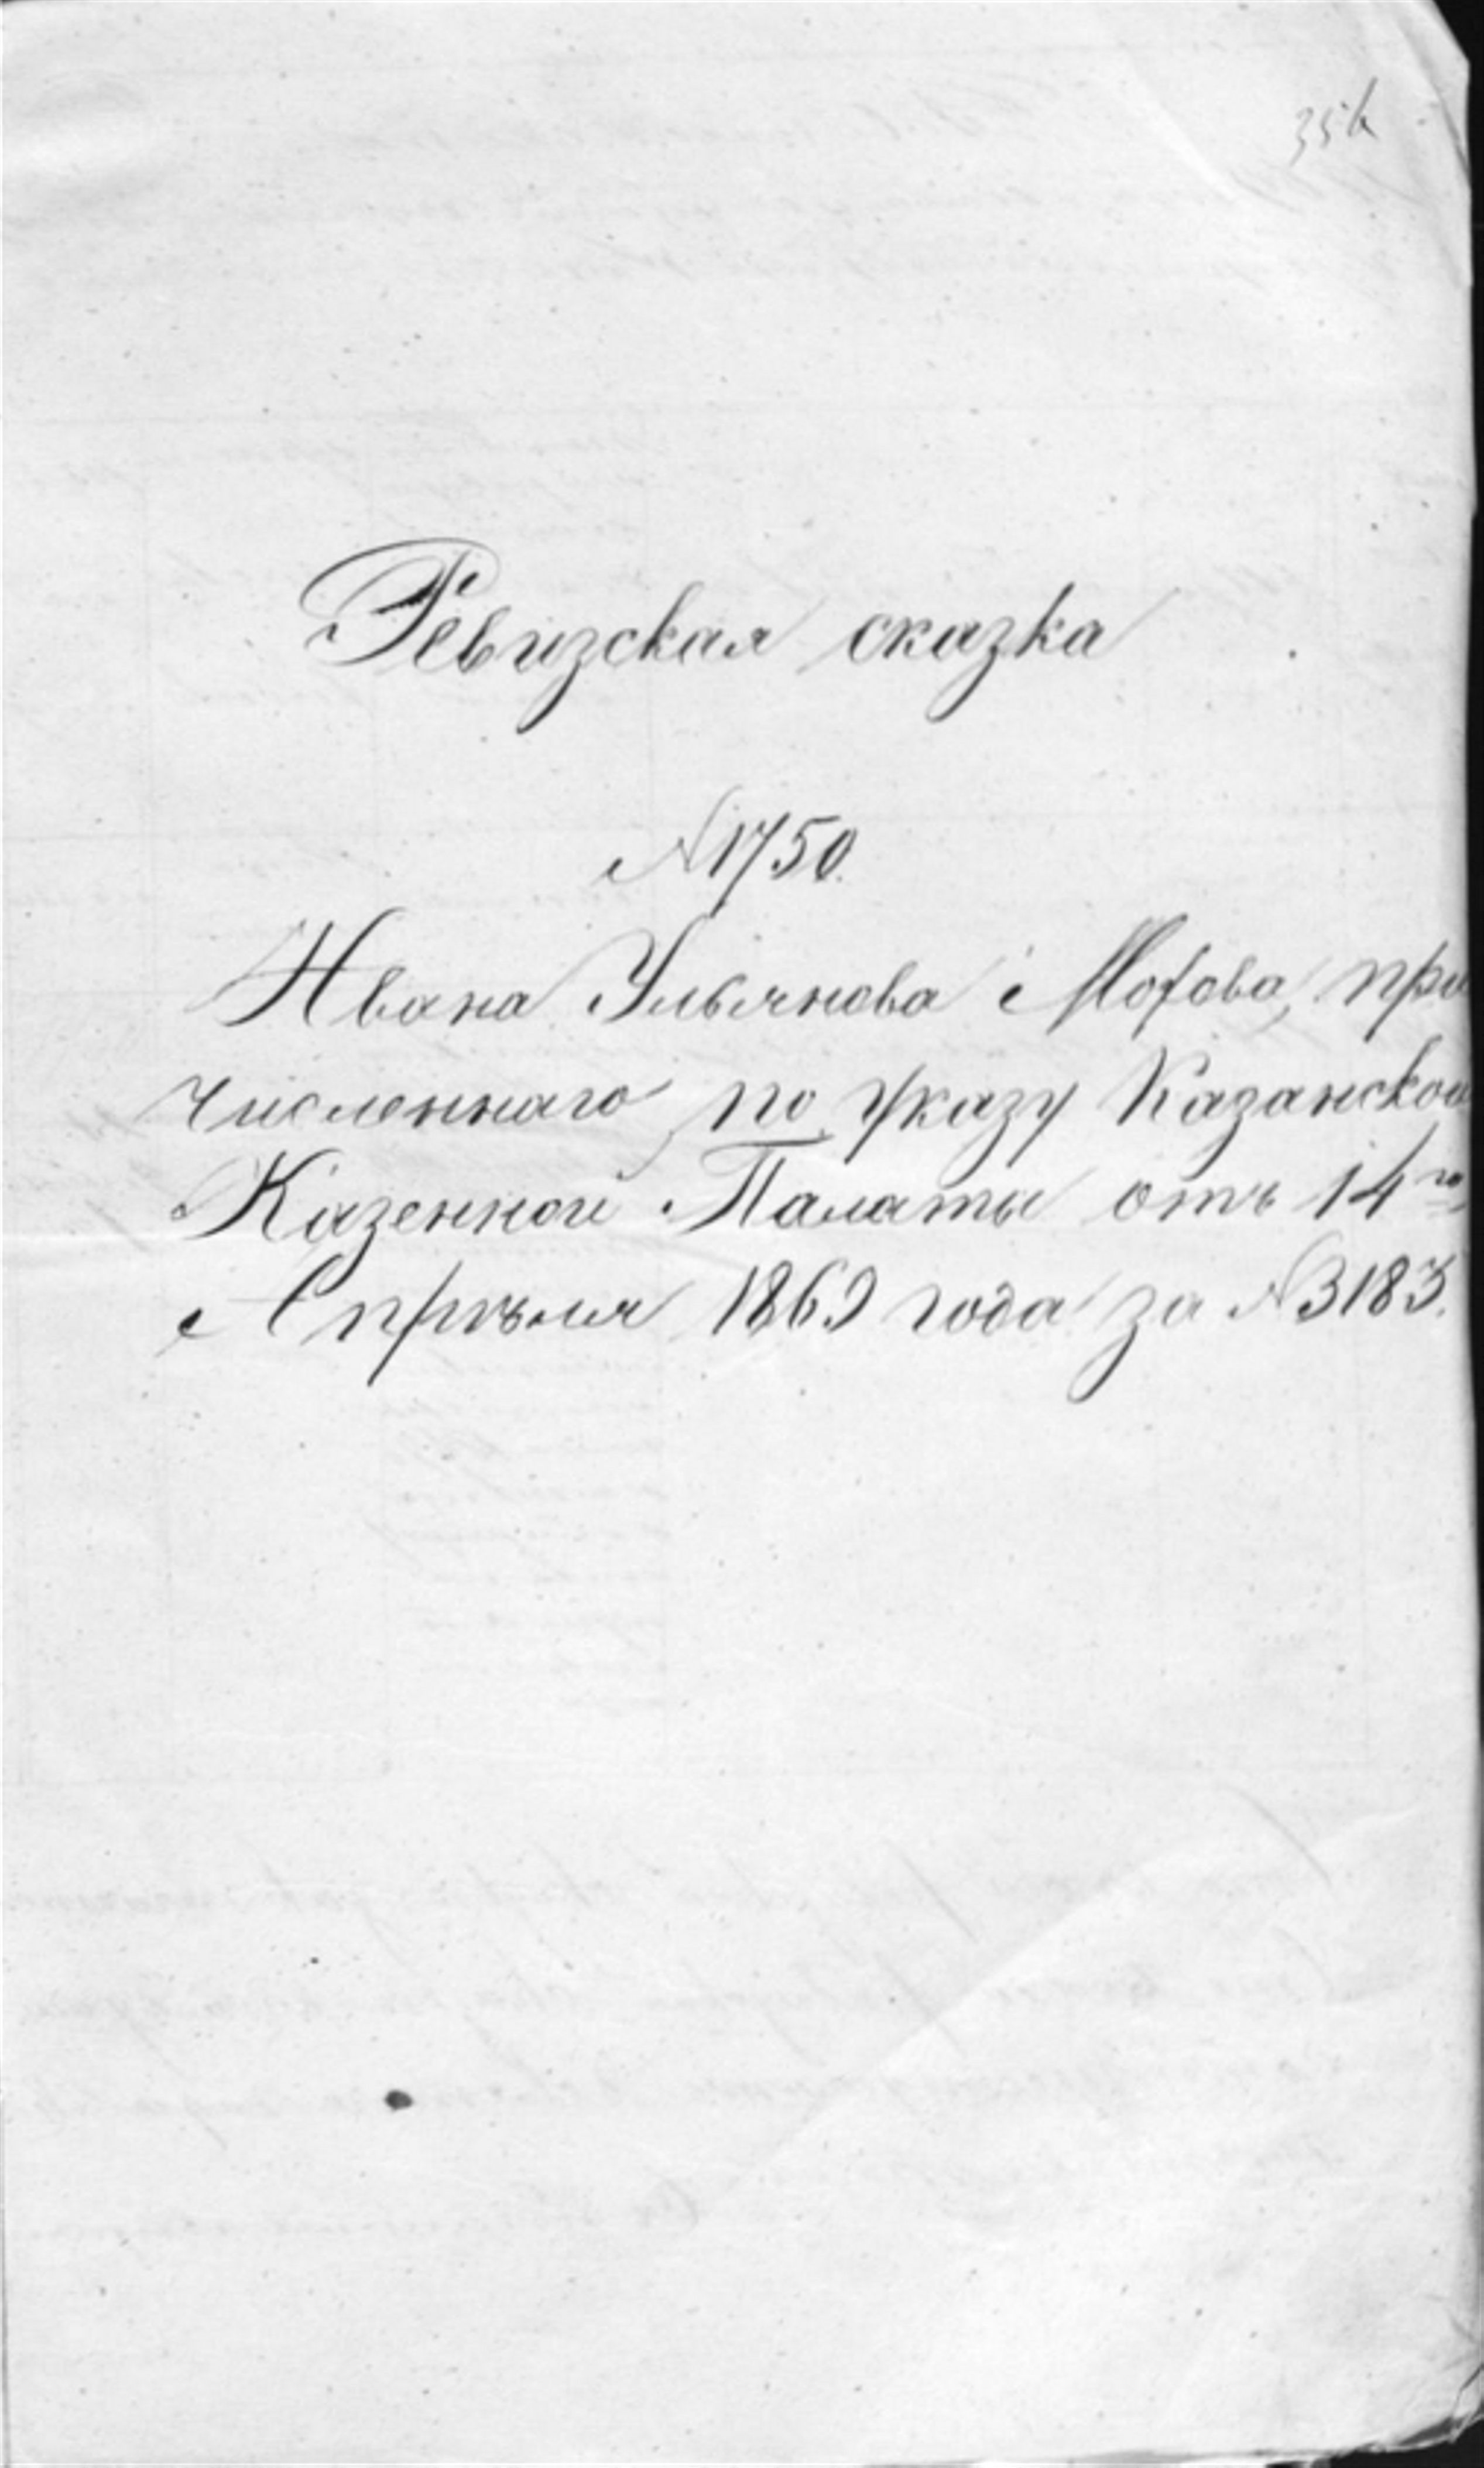 Ревизская сказка
№ 1750.
Ивана Ульянова Мохова, при
численнаго по указу Казанской
Казенной Палаты отъ 14го
Апрѣля 1869 года за № 3183.